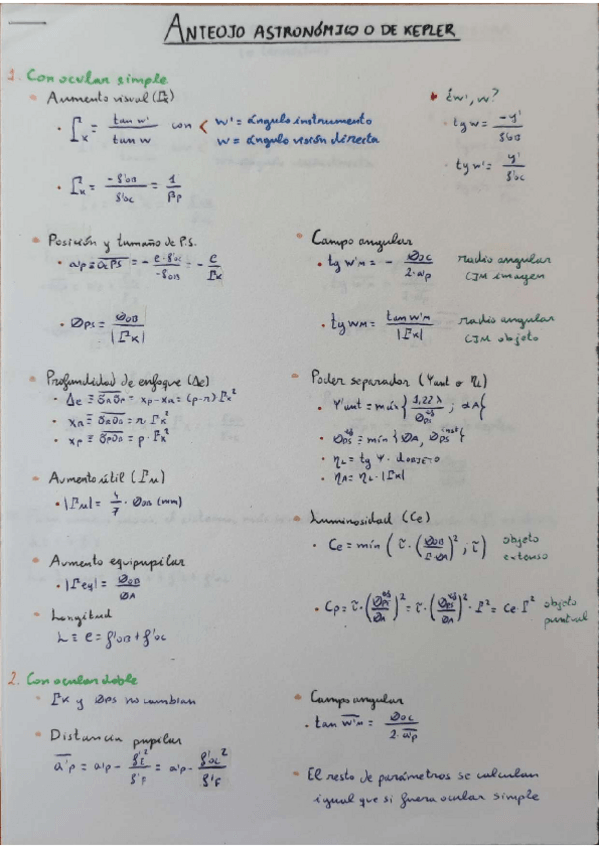 ANTEOJO ASTRONÓMICO O DE KEPLER
1. Con ocular simple
• Aumento visual (Γk)
• Γk = tan w' / tan w con < w' = ángulo instrumento
w = ángulo visión directa
• Γk = -f'OB / f'OC = 1 / βp
• ¿w', w?
• tg w = -y' / f'OB
• tg w' = y' / f'OC
• Posición y tamaño de P.S.
• a'p ≡ OcPS = - e·f'OC / -f'OB = - e / Γk
• ØPS = ØOB / |Γk|
• Campo angular
• tg w'M = - ØOC / 2·a'p radio angular
CIM imagen
• tg wM = tan w'M / |Γk| radio angular
CIM objeto
• Profundidad de enfoque (Δe)
• Δe ≡ OROP = xp - xR = (p-r) Γk²
• xR ≡ OROB = r·Γk²
• xp ≡ OPOB = p·Γk²
• Poder separador (γunt o ηL)
• γ'unt = máx { 1,22 λ / ØPS ; αA }
• ØPS ≡ mín { ØA, ØPS inst }
• ηL = tg γ · dOBJETO
• ηA = ηL · |Γk|
• Aumento útil (Γu)
• |Γu| = 4/7 · ØOB (mm)
• Aumento equipupilar
• |Γeq| = ØOB / ØA
• Longitud
L ≡ e = f'OB + f'OC
• Luminosidad (Ce)
• Ce = mín ( τ · ( ØOB / Γ·ØA )² ; τ ) objeto
extenso
• Cp = τ · ( ØPE / ØA )² = τ · ( ØPS / ØA )² · Γ² = Ce · Γ² objeto
puntual
2. Con ocular doble
• Γk y ØPS no cambian
• Distancia pupilar
a'p = a'p - f'E² / f'F = a'p - f'OC² / f'F
• Campo angular
• tan w'M = ØOC / 2·a'p
• El resto de parámetros se calculan
igual que si fuera ocular simple